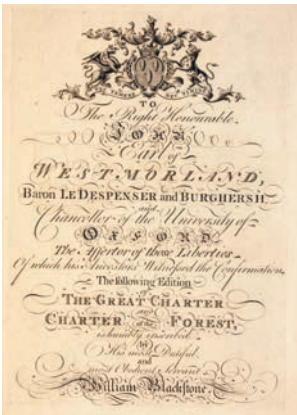 TO
The Right Honourable
JOHN
Earl of
WESTMORLAND,
Baron LE DESPENSER and BURGHERSH
and
Chancellor of the University of
OXFORD
The Assertor of those Liberties
Of which his Ancestors Witnessed the Confirmation,
The following Edition
of
THE GREAT CHARTER
and
CHARTER of the FOREST,
is humbly inscribed
by
His most Dutiful
and
most Obedient Servant
William Blackstone.